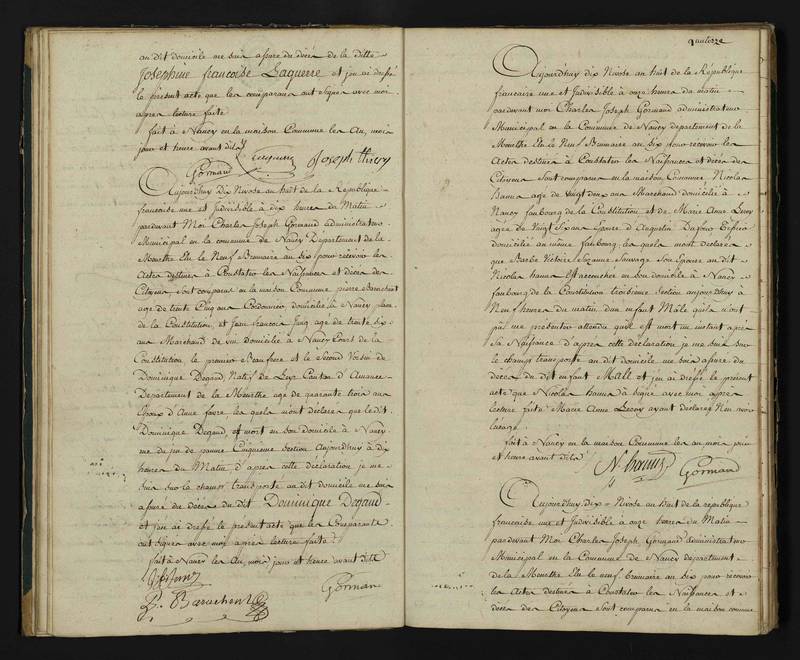 au dit domicile me suis assuré du décès de la ditte
Josephine francoise Laguerre et j'en ai dressé
le présent acte que les comparans ont signés avec moi
apres lecture faite
fait à Nancy en la maison Commune les An, mois
jour et heure avant dits
Joseph thiery
Gormand
Aujourdhuy Dix Nivose an huit de la Republique
francaise une et Indivisible à dix heures du Matin
pardevant Moi Charles Joseph Gormand administrateur
Municipal en la commune de Nancy Département de la
Meurthe Elu le Neuf Brumaire an Six pour recevoir les
Actes destinés à Constater les Naissances et décès des
Citoyens sont comparus en la maison Commune pierre Barachent
age de trente Cinq ans Cordonnier domicilié à Nancy place
de la Constitution, et Jean francois Jung agé de trente six
ans Marchand de vin domicilié à Nancy Cours de la
Constitution le premier Beaufrere et le Second Voisin de
Dominique Degand Natif de Leyr Canton d'Amance
Departement de la Meurthe age de quarante trois ans
Epoux d'Anne favre les quels m'ont déclaré que le dit
Dominique Degand est mort en son domicile à Nancy
Cinquieme Section Aujourdhuy à dix
heures du Matin d'apres cette déclaration je me
suis sur le champ transporté au dit domicile me suis
assuré du décès du dit Dominique Degand
et j'en ai dressé le présent acte que les Comparants
ont signés avec moi apres lecture faite
fait à Nancy les An, mois jour et heure avant dits
Gormand
P. Barachent
quatorze
Aujourdhuy dix Nivose an huit de la République
francaise une et Indivisible à onze heures du matin
pardevant moi Charles Joseph Gormand administrateur
Municipal en la Commune de Nancy département de la
Meurthe Elu le Neuf Brumaire an Six pour recevoir les
Actes destinés à Constater les Naissances et décès des
Citoyens sont comparus en la maison Commune Nicolas
hanus age de vingt deux ans Marchand domicilié à
Nancy faubourg de la Constitution et de Marie Anne Leroy
agée de Vingt Six ans Epouse d'Augustin
domicilié au même faubourg les quels m'ont déclaré
que Barbe Victoire Suzanne Sauvage son Epouse au dit
Nicolas hanus Est accouchée en son domicile à Nancy
faubourg de la Constitution troisieme section aujourdhuy à
Neuf heures du matin d'un enfant Mâle qu'ils n'ont
pas me présenter attendu qu'il est mort un instant après
sa Naissance d'apres cette déclaration je me suis sur
le champs transporté au dit domicile me suis assuré du
décès du dit enfant Mâle et j'en ai dressé le présent
acte que Nicolas hanus à signé avec moi apres
lecture faite Marie Anne Leroy ayant déclaré Ne
fait à Nancy en la maison Commune les an, mois jour
et heure avant dits
N. hanus
Gormand
Aujourdhuy Dix Nivose an huit de la republique
francaise une et Indivisible à onze heures du Matin
pardevant Moi Charles Joseph Gormand administrateur
Municipal en la Commune de Nancy département
de la Meurthe Elu le neuf brumaire an Six pour recevoir
les Actes destinés à Constater les Naissances et
décès des Citoyens sont comparus en la maison commune